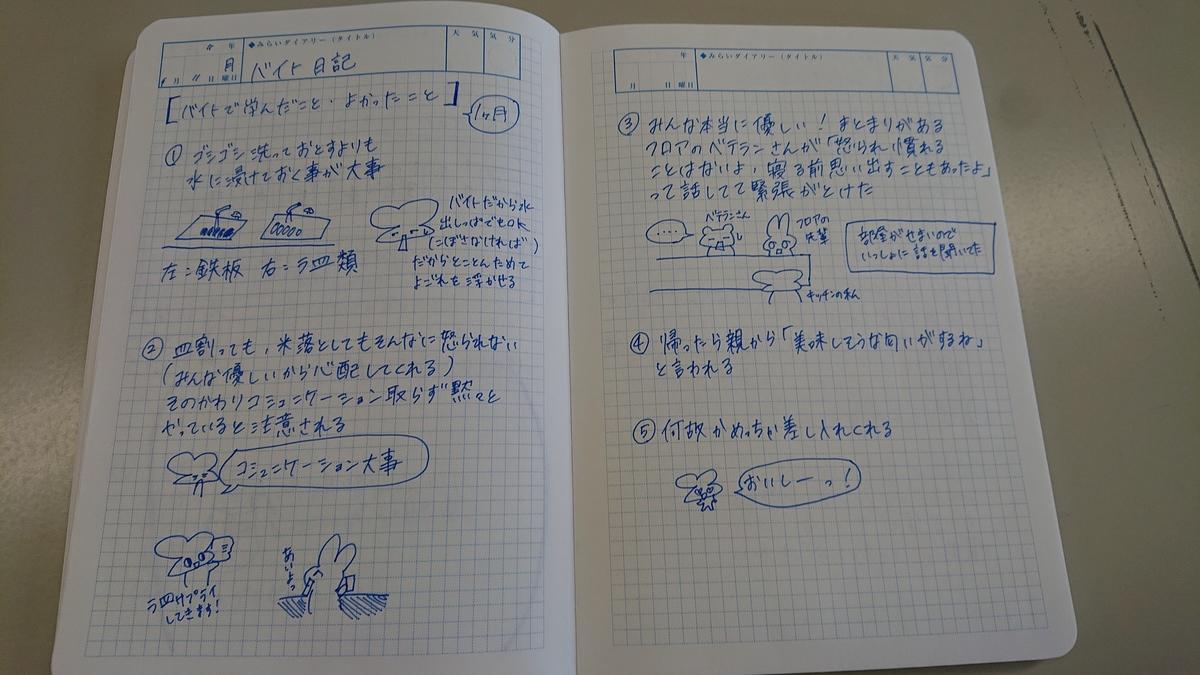 年
月 日 曜日
月
◆みらいダイアリー（タイトル）
バイト日記
天気
気分
[バイトで学んだこと・よかったこと]
1ヶ月
① ゴシゴシ洗っておとすよりも
水に浸けておく事が大事
バイトだから水
出しっぱでもOK
(こぼさなければ)
だからとことんためて
よごれを浮かせる
左:鉄板 右:う皿類
② 皿割っても、米落としてもそんなに怒られない
(みんな優しいから心配してくれる)
そのかわりコミュニケーション取らず黙々と
やっていると注意される
コミュニケーション大事
う皿サプライ
してきます!
あいよっ
年
月 日 曜日
◆みらいダイアリー（タイトル）
天気
気分
③ みんな本当に優しい! まとまりがある
フロアのベテランさんが「怒られ慣れる
ことはないよ、寝る前思い出すこともあったよ」
って話してて緊張がとけた
....
ベテランさん
フロアの
先輩
キッチンの私
部屋がせまいので
いっしょに話を聞いてた
④ 帰ったら親から「美味しそうな匂いがするね」
と言われる
⑤ 何故かめっちゃ差し入れくれる
おいしーっ!